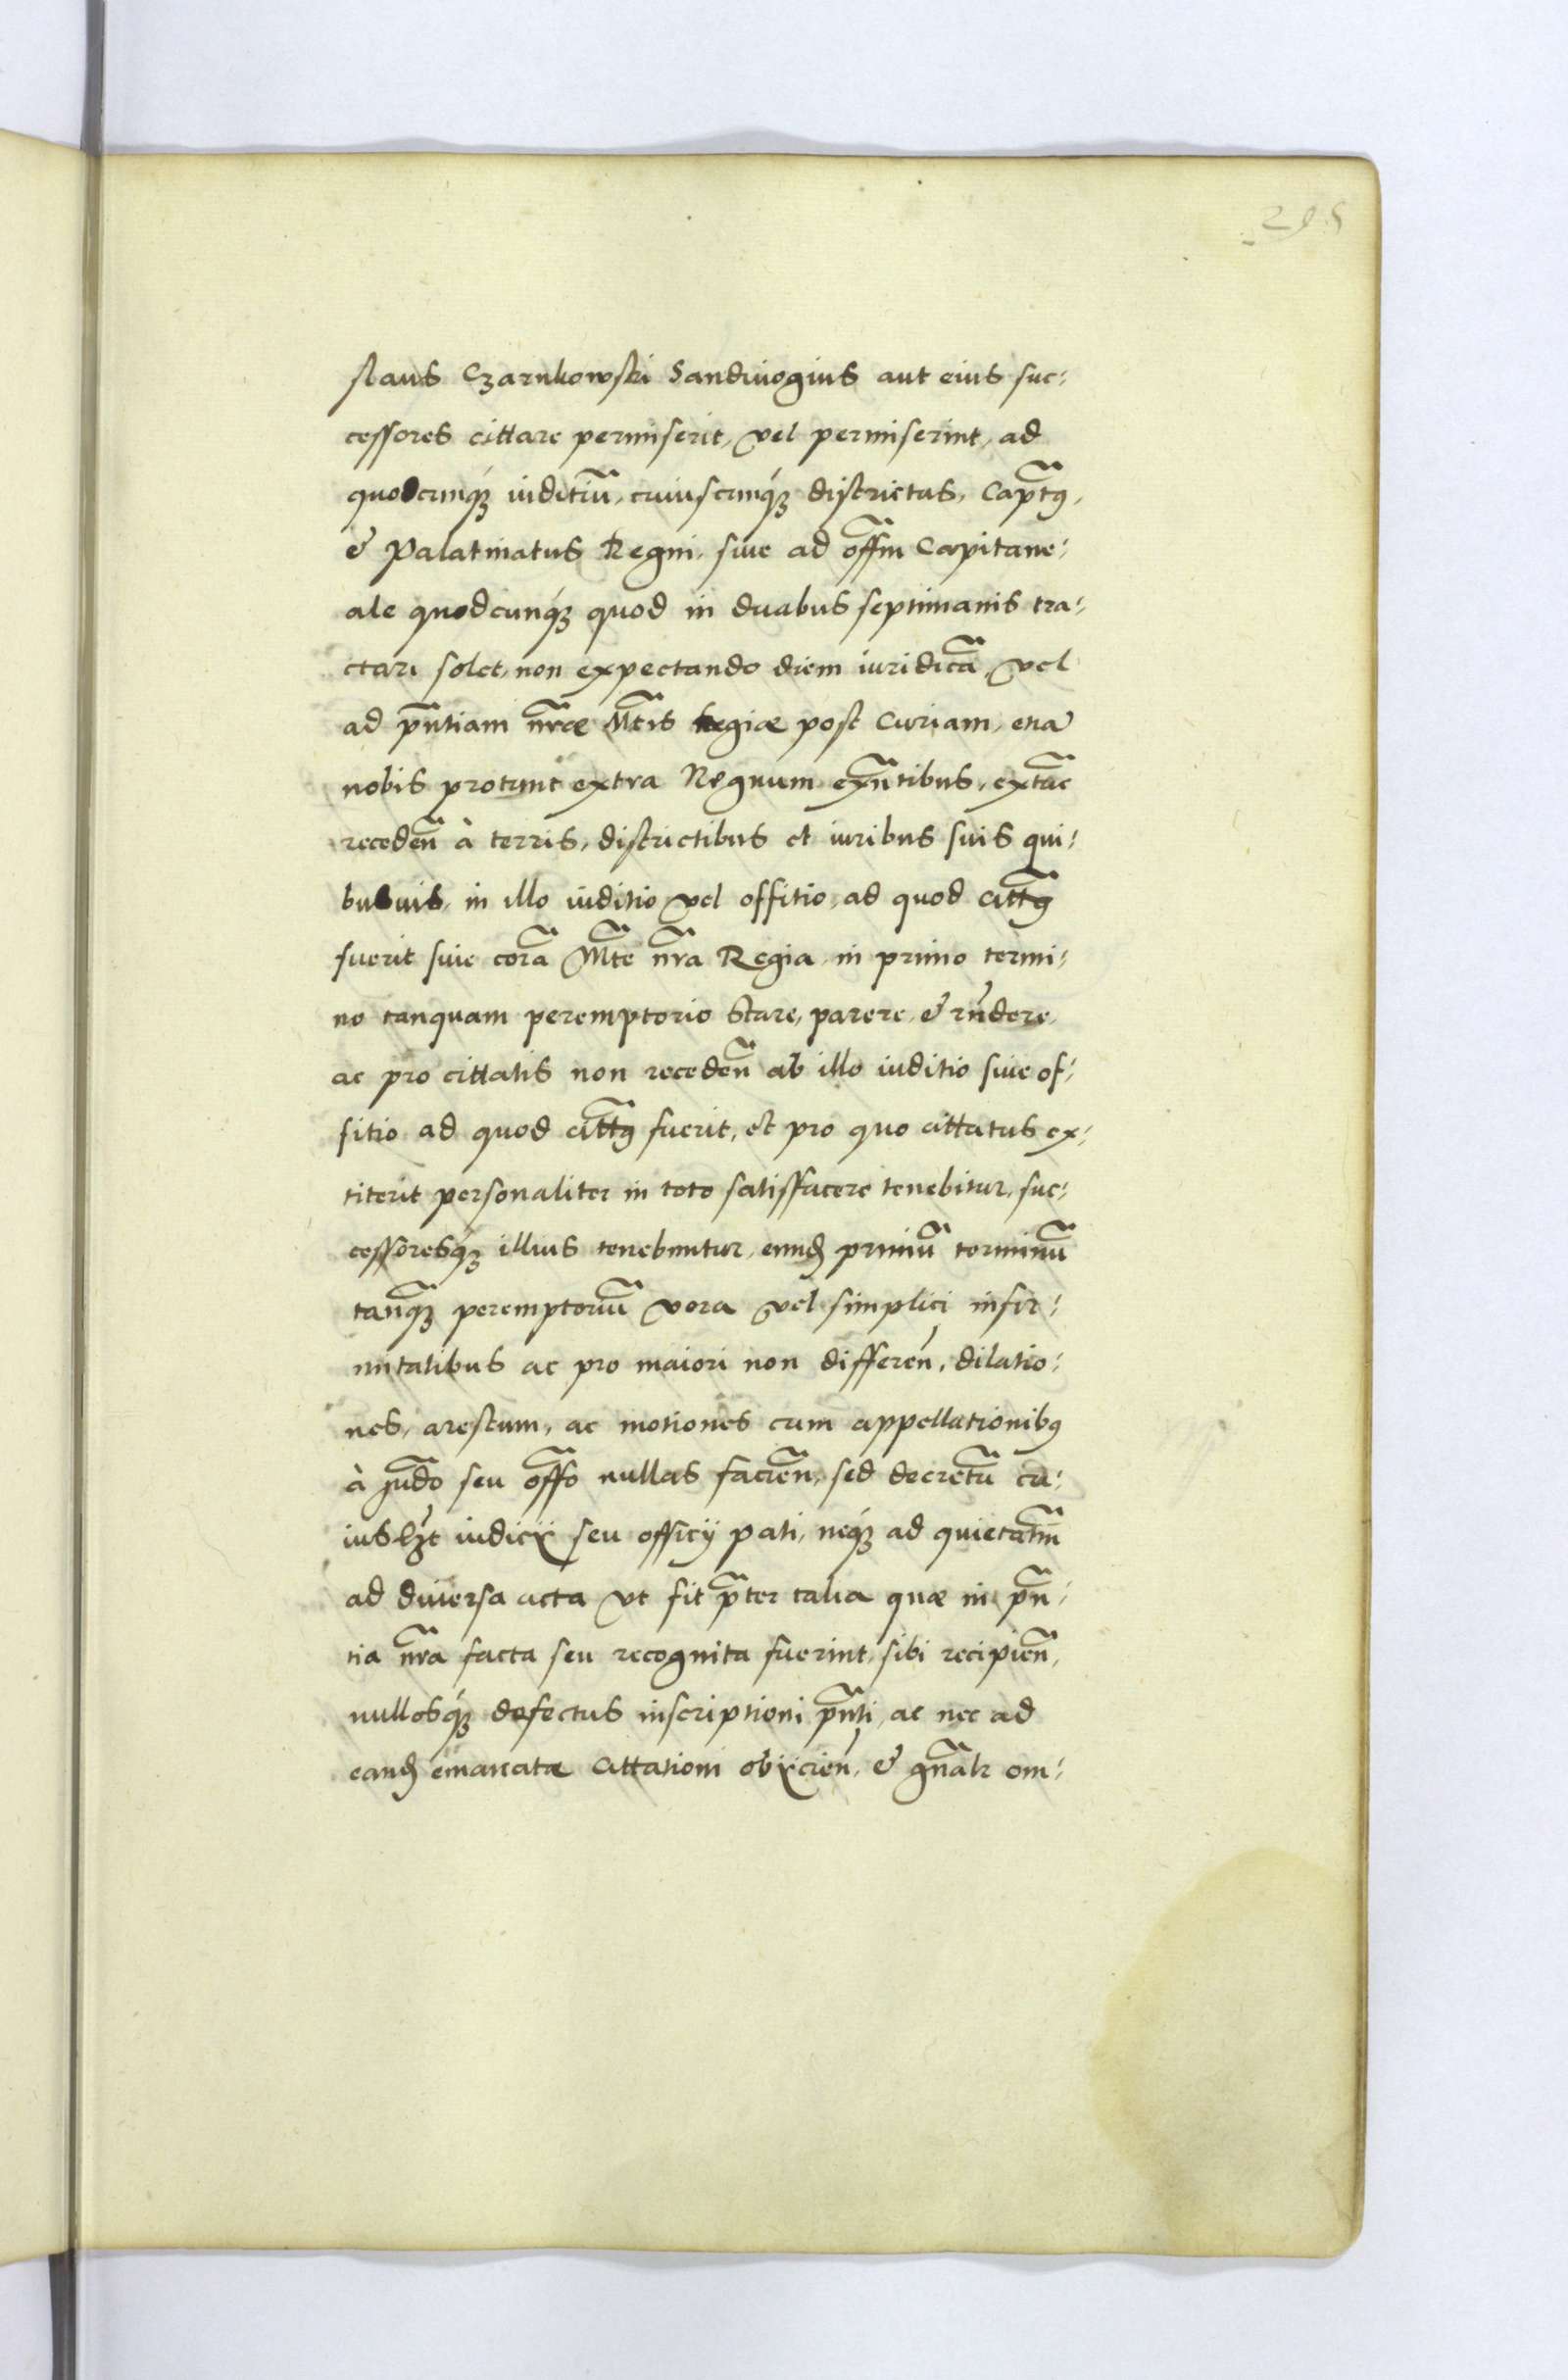 295
slaus Czarnkowski Sandivogius aut eius suc:
cessores cittare permiserit, vel permiserint, ad
quodcunq́ꝫ iuditiũ, cuiuscunq́ꝫ districtus, Cap̃tꝰ,
& Palatinatus Regni, siue ad off̃m Capitane:
ale quodcunq́ꝫ quod in duabus septimanis tra:
ctari solet, non expectando diem iuridicã, vel
ad p̃ntiam nr̃æ Mt̃is Regiæ post Curiam, etiã
nobis protunc extra Regnum ex̃ntibus, ext̃ac
recedeñ à terris, districtibus et iuribus suis qui:
busuis, in illo iuditio vel offitio, ad quod citt̃ꝰ
fuerit siue corã Mt̃e nr̃a Regia in primo termi:
no tanquam peremptorio stare, parere, & rñdere,
ac pro cittatis non recedeñ ab illo iuditio siue of:
fitio ad quod citt̃ꝰ fuerit, et pro quo cittatus ex:
titerit personaliter in toto satisfacere tenebitur, suc:
cessoresq́ꝫ illius tenebuntur, eund primũ terminũ
tanq̃ꝫ peremptoriũ vera vel simplici infir:
mitatibus ac pro maiori non differeñ, dilatio:
nes, arestum, ac motiones cum appellationibꝰ
à Jud̃o seu off̃o nullas facieñ, sed decretũ cu:
iuslꝫt iudicij seu officij pati, neq́ꝫ ad quietatm̃
ad diuersa acta vt fit p̃ter talia quæ in p̃n:
tia nr̃a facta seu recognita fuerint, sibi recipieñ,
nullosq́ꝫ defectus inscriptioni p̃nti, ac nec ad
eand emanatæ cittationi obijcieñ, & gñalr om: